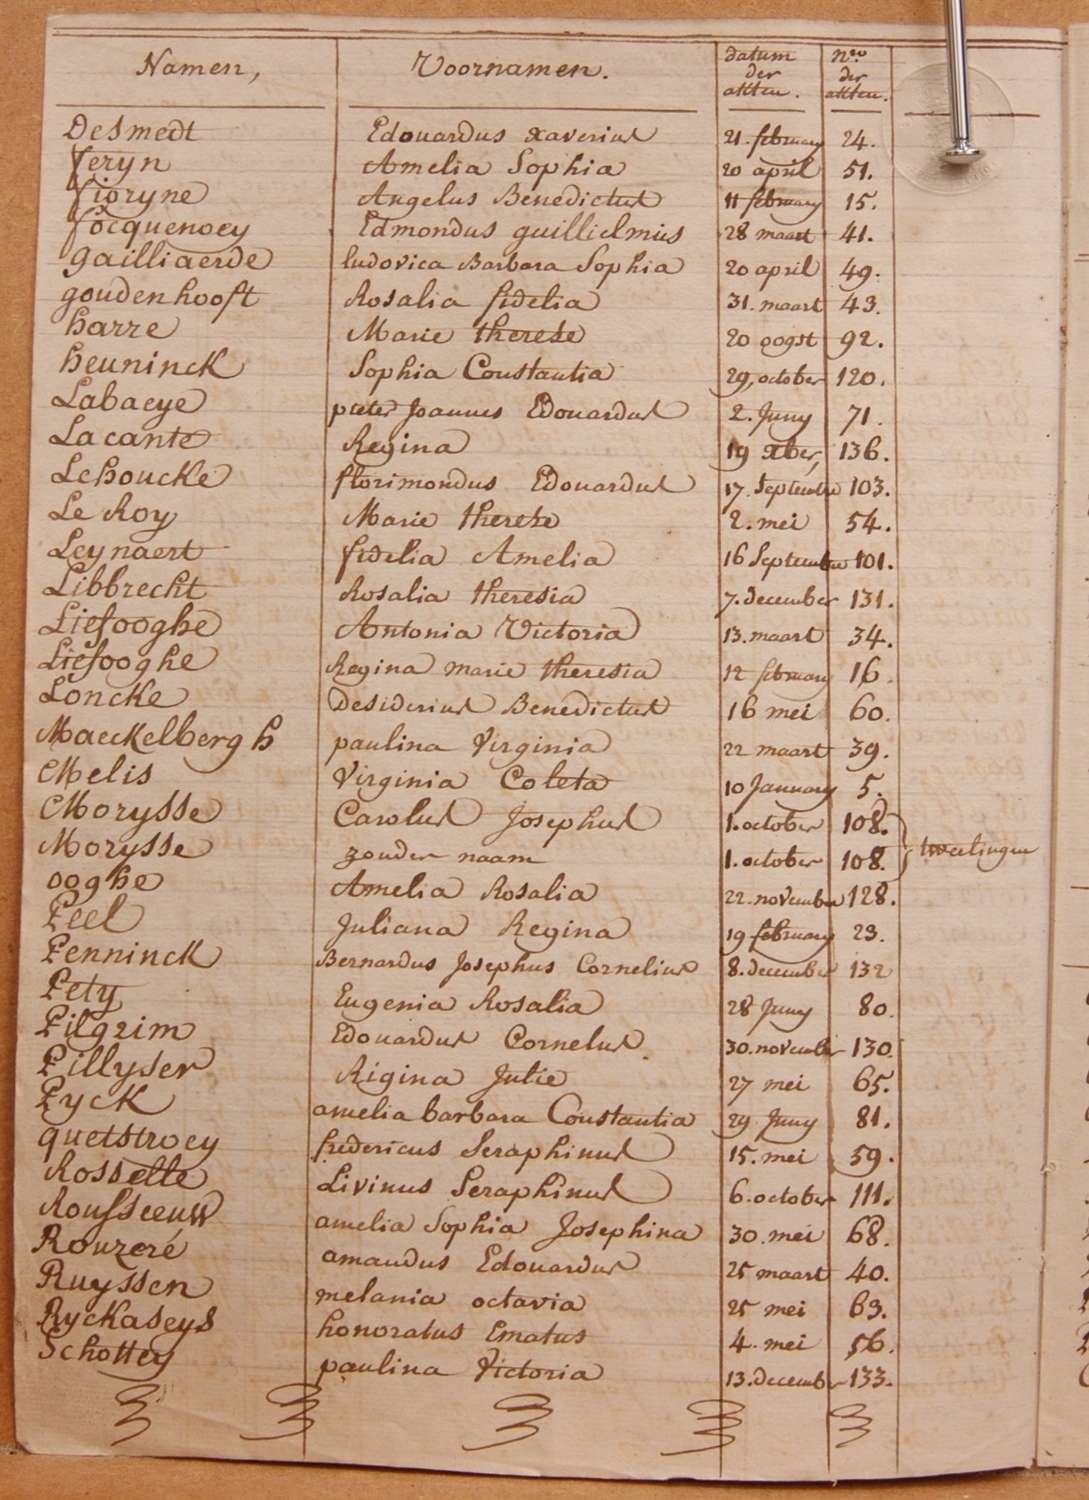 Namen, Voornamen. datum der akten. nro der akten.
Desmedt Edouardus Xaverius 21. february 24.
feryn Amelia Sophia 20 april 51.
fioryne Angelus Benedictus 11 february 15.
focquenoey Edmondus guillielmus 28 maart 41.
gailliaerde ludovica Barbara Sophia 20 april 49.
goudenhooft Rosalia fidelia 31. maart 43.
harre Marie therese 20 oogst 92.
heuninck Sophia Constantia 29, october 120.
Labaeye pieter Joannes Edouardus 2. Juny 71.
Lacante Regina 19 xber, 136.
Lehoucke florimondus Edouardus 17. Septembre 103.
Le Roy Marie therese 2. mei 54.
Leynaert fidelia Amelia 16 Septembre 101.
Libbrecht Rosalia theresia 7. december 131.
Liefooghe Antonia Victoria 13. maart 34.
Liefooghe Regina marie theresia 12 february 16.
Loncke Desiderius Benedictus 16 mei 60.
Maeckelbergh paulina Virginia 22 maart 39.
Melis Virginia Coleta 10 January 5.
Morysse Carolus Josephus 1. october 108.
Morysse zonder naam 1. october 108. tweelingen
ooghe Amelia Rosalia 22. november 128.
Peel Juliana Regina 19 february 23.
Penninck Bernardus Josephus Cornelius 8. december 132
Pety Eugenia Rosalia 28 Juny 80.
Pilgrim Edouardus Cornelus 30. november 130.
Pillyser Rigina Julie 27 mei 65.
Pyck amelia barbara Constantia 29 Juny 81.
quetstroey fredericus Seraphinus 15. mei 59.
Rossette Livinus Seraphinus 6. october 111.
Rousseeuw amelia Sophia Josephina 30. mei 68.
Rouzeré amandus Edouardus 25 maart 40.
Ruyssen melania octavia 25 mei 63.
Ryckaseys honoratus Ematus 4. mei 56.
Schottey paulina Victoria 13. december 133.